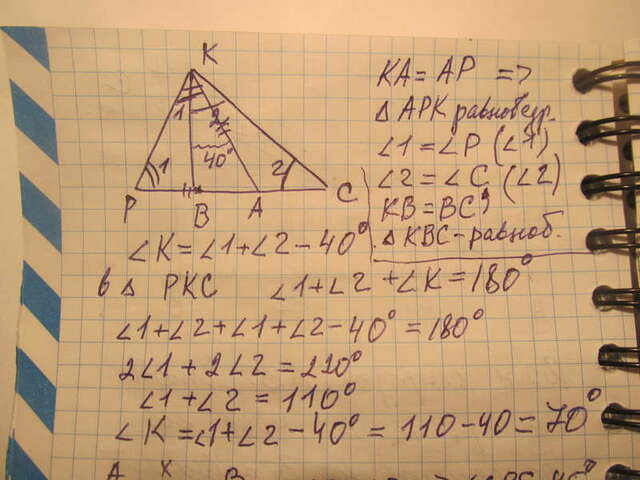 K
1
2
40°
1
2
P
B
A
C
KA = AP =>
△ APK равнобедр.
∠1 = ∠P (∠1)
∠2 = ∠C (∠2)
KB = BC,
△ KBC - равноб.
∠K = ∠1 + ∠2 - 40°
в △ PKC ∠1 + ∠2 + ∠K = 180°
∠1 + ∠2 + ∠1 + ∠2 - 40° = 180°
2∠1 + 2∠2 = 220°
∠1 + ∠2 = 110°
∠K = ∠1 + ∠2 - 40° = 110 - 40 = 70°